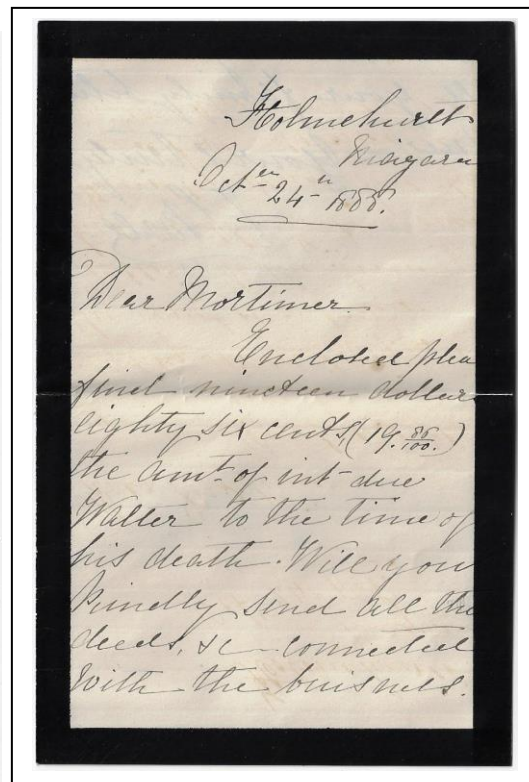 Holmehurst
Niagara
Octer 24th 1888.
Dear Mortimer.
Enclosed plea
find nineteen dollars
eighty six cents (19.86/100.)
the amt of int due
Walter to the time of
his death. Will you
kindly send all the
deeds, &c connected
with the buisness.